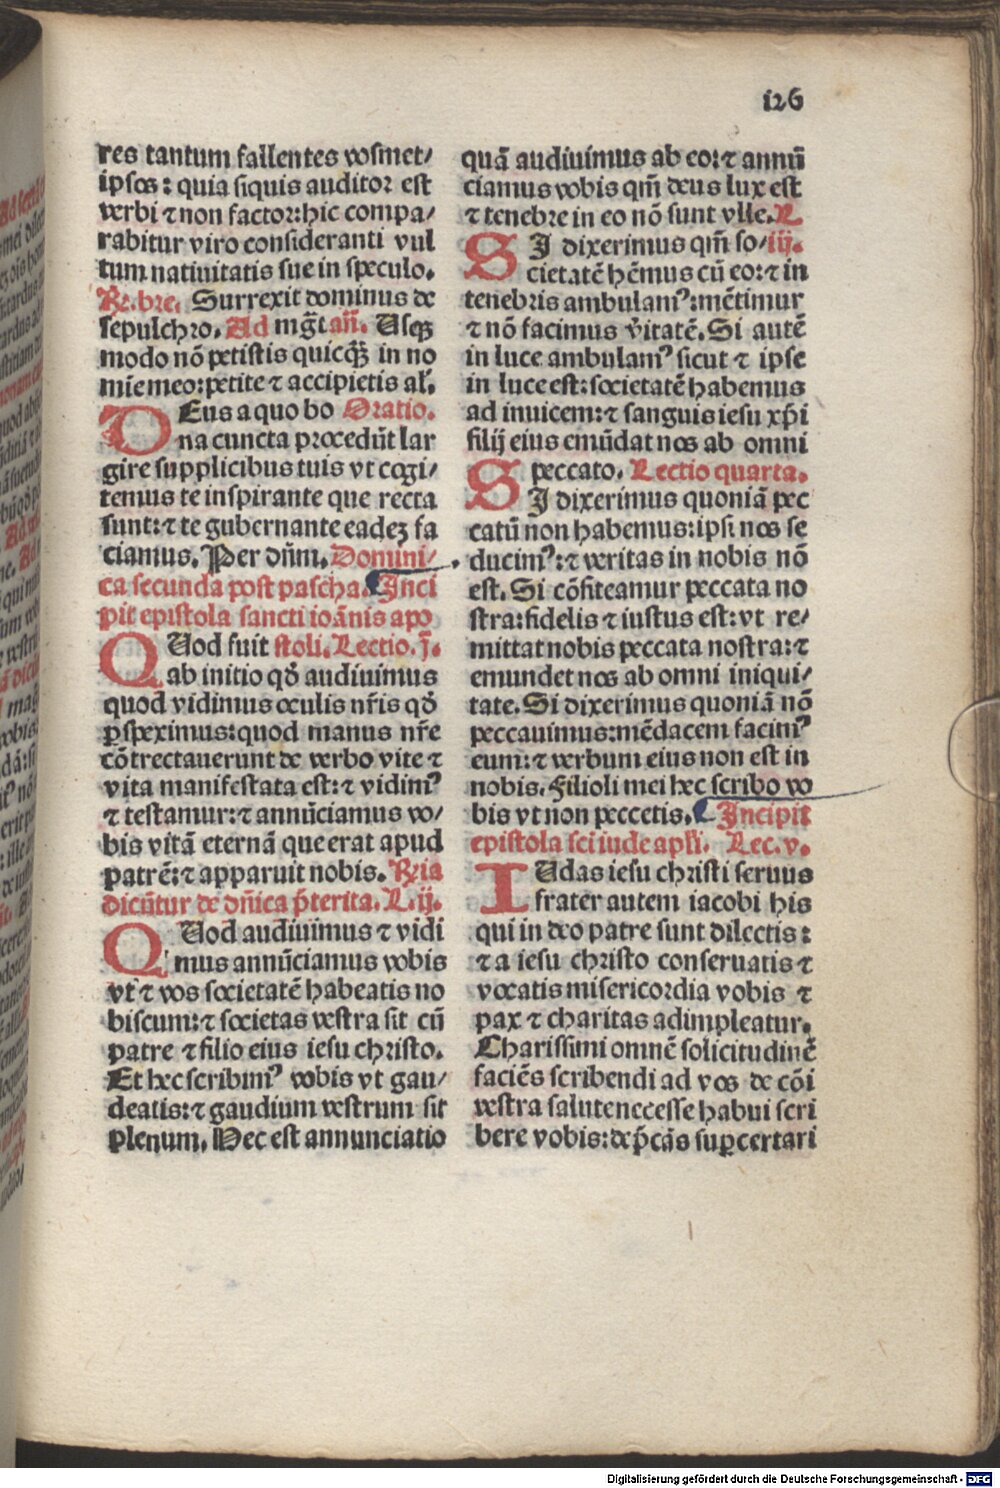 126
res tantum fallentes vosmet/
ipsos: quia siquis auditor est
verbi ⁊ non factor: hic compa/
rabitur viro consideranti vul
tum natiuitatis sue in speculo.
R̃. bre. Surrexit dominus de
sepulchro. Ad mg̃t an̄. Usqꝫ
modo nō petistis quicq̄ꝫ in no
mīe meo: petite ⁊ accipietis al'.
DEus a quo bo Oratio.
na cuncta procedūt lar
gire supplicibus tuis vt cogi/
temus te inspirante que recta
sunt: ⁊ te gubernante eadeꝫ fa
ciamus. Per dn̄m. Domini/
ca secunda post pascha. Inci
pit epistola sancti ioānis apo
QUod fuit stoli. Lectio. j.
ab initio qd̄ audiuimus
quod vidimus oculis nr̄is qd̄
ꝑspeximus: quod manus nr̄e
cōtrectauerunt de verbo vite ⁊
vita manifestata est: ⁊ vidimꝰ
⁊ testamur: ⁊ annūciamus vo/
bis vitā eternā que erat apud
patrē: ⁊ apparuit nobis. R̃ia
dicūtur de dn̄ica p̄terita. L. ij.
QUod audiuimus ⁊ vidi
mus annūciamus vobis
vt ⁊ vos societatē habeatis no
biscum: ⁊ societas vestra sit cū
patre ⁊ filio eius iesu christo.
Et hec scribimꝰ vobis vt gau/
deatis: ⁊ gaudium vestrum sit
plenum. Hec est annunciatio
quā audiuimus ab eo: ⁊ annū
ciamus vobis qm̄ deus lux est
⁊ tenebre in eo nō sunt vlle. L
SI dixerimus qm̄ so/ iij.
cietatē hēmus cū eo: ⁊ in
tenebris ambulamꝰ: mētimur
⁊ nō facimus v̄itatē. Si autē
in luce ambulamꝰ sicut ⁊ ipse
in luce est: societatē habemus
ad inuicem: ⁊ sanguis iesu xp̄i
filij eius emūdat nos ab omni
peccato. Lectio quarta.
SI dixerimus quoniā pec
catū non habemus: ipsi nos se
ducimꝰ: ⁊ veritas in nobis nō
est. Si cōfiteamur peccata no
stra: fidelis ⁊ iustus est: vt re/
mittat nobis peccata nostra: ⁊
emundet nos ab omni iniqui/
tate. Si dixerimus quoniā nō
peccauimus: mēdacem facimꝰ
eum: ⁊ verbum eius non est in
nobis. Filioli mei hec scribo vo
bis vt non peccetis. Incipit
epistola sci iude apl'i. Lec. v.
IUdas iesu christi seruus
frater autem iacobi his
qui in deo patre sunt dilectis:
⁊ a iesu christo conseruatis ⁊
vocatis misericordia vobis ⁊
pax ⁊ charitas adimpleatur.
Charissimi omnē solicitudinē
faciēs scribendi ad vos de cōi
vestra salute necesse habui scri
bere vobis: dep̄cās suꝑcertari
Digitalisierung gefördert durch die Deutsche Forschungsgemeinschaft - DFG